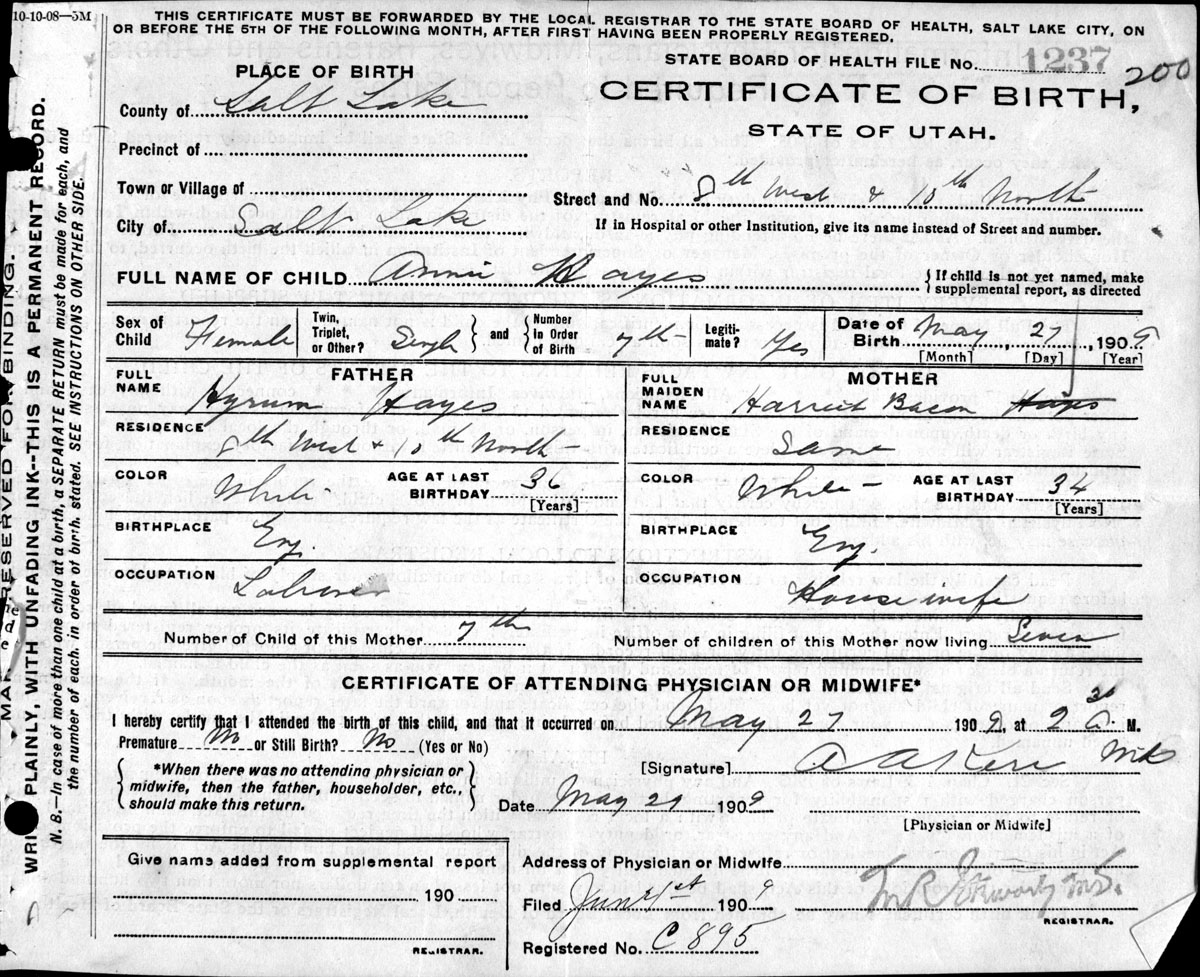 10-10-08—5M
THIS CERTIFICATE MUST BE FORWARDED BY THE LOCAL REGISTRAR TO THE STATE BOARD OF HEALTH, SALT LAKE CITY, ON
OR BEFORE THE 5TH OF THE FOLLOWING MONTH, AFTER FIRST HAVING BEEN PROPERLY REGISTERED.
STATE BOARD OF HEALTH FILE No. 1237
200
PLACE OF BIRTH
CERTIFICATE OF BIRTH,
STATE OF UTAH.
County of Salt Lake
Precinct of
Town or Village of
Street and No. 8th West & 10th North
City of Salt Lake
If in Hospital or other Institution, give its name instead of Street and number.
FULL NAME OF CHILD Annie Hayes
{If child is not yet named, make
supplemental report, as directed
Sex of Child Female
Twin, Triplet, or Other? Single } and { Number In Order of Birth 7th
Legiti-mate? Yes
Date of Birth May 27, 1909
[Month] [Day] [Year]
FATHER
FULL NAME Hyrum Hayes
MOTHER
FULL MAIDEN NAME Harriet Bacon
RESIDENCE 8th West & 10th North
RESIDENCE Same
COLOR White
AGE AT LAST BIRTHDAY 36
[Years]
COLOR White
AGE AT LAST BIRTHDAY 34
[Years]
BIRTHPLACE Eng.
BIRTHPLACE Eng.
OCCUPATION Laborer
OCCUPATION Housewife
Number of Child of this Mother 7th
Number of children of this Mother now living Seven
CERTIFICATE OF ATTENDING PHYSICIAN OR MIDWIFE*
I hereby certify that I attended the birth of this child, and that it occurred on May 27 1909, at 2 A. M.
Premature No or Still Birth? No (Yes or No)
{ *When there was no attending physician or
midwife, then the father, householder, etc.,
should make this return. }
[Signature] MD
Date May 29 1909
[Physician or Midwife]
Give name added from supplemental report
190
REGISTRAR.
Address of Physician or Midwife
Filed June 1st 1909
REGISTRAR.
Registered No. C 895
MARGIN RESERVED FOR BINDING.
WRITE PLAINLY, WITH UNFADING INK--THIS IS A PERMANENT RECORD.
N. B.—In case of more than one child at a birth, a SEPARATE RETURN must be made for each, and
the number of each, in order of birth, stated. SEE INSTRUCTIONS ON OTHER SIDE.